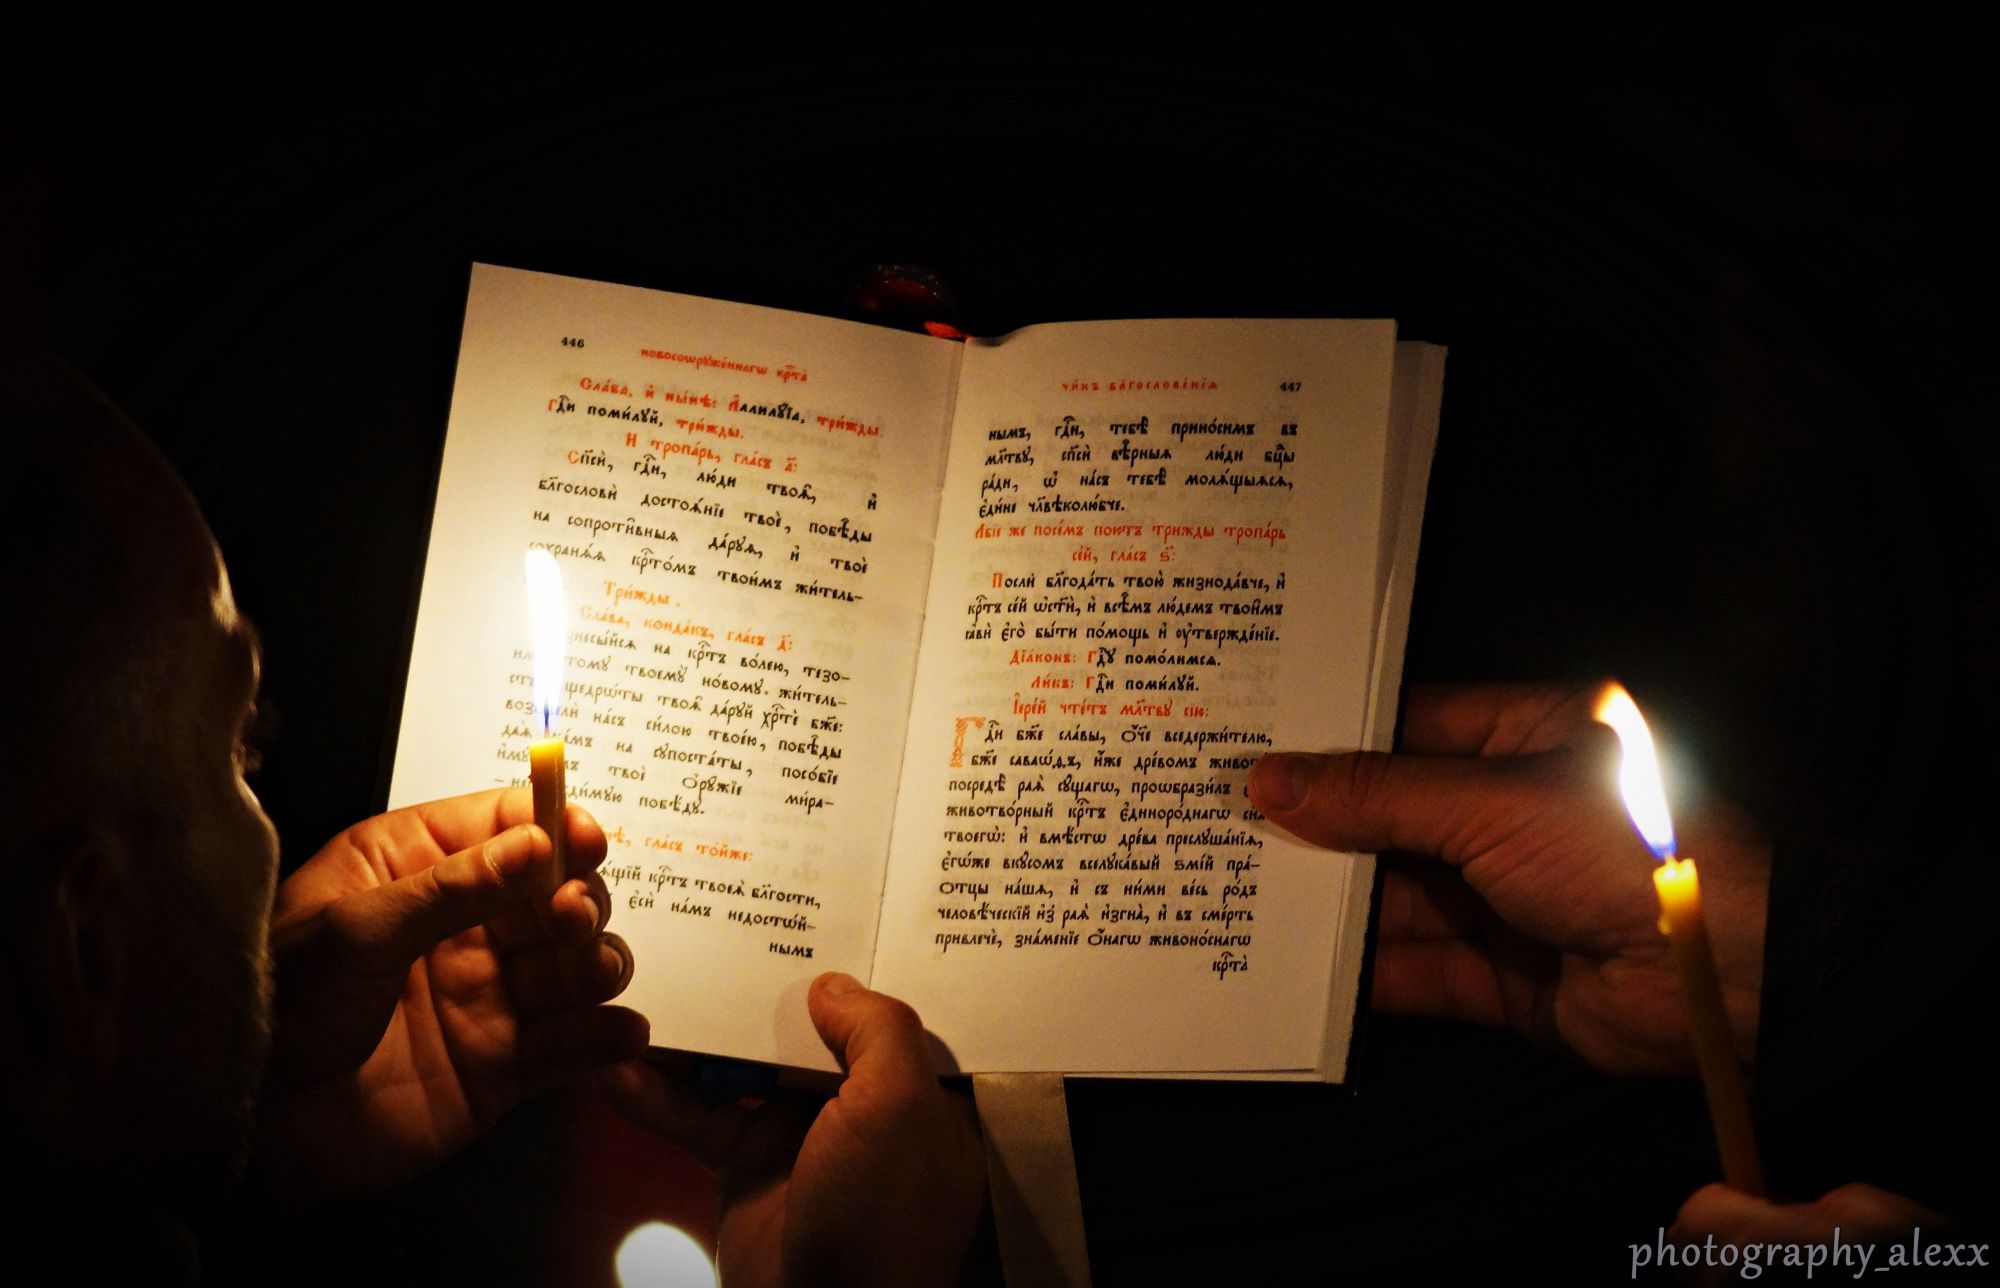 446
новосоѡрꙋже́ннагѡ крⷭ҇та̀
Сла́ва, и҆ ны́нѣ: А҆ллилꙋ́їа, три́жды.
Гдⷭ҇и поми́лꙋй, три́жды.
И тропа́рь, гла́съ а҃:
Сп҃сѝ, гдⷭ҇и, лю́ди твоѧ҄, и҆
бл҃гословѝ достоѧ́нїе твоѐ, побѣ́ды
на сопроти̑вныѧ да́рꙋѧ, и҆ твоѐ
сохранѧ́ѧ крⷭ҇то́мъ твои́мъ жи́тель-
Три́жды.
Сла́ва, конда́къ, гла́съ д҃:
на крⷭ҇тъ во́лею, тезо-
твоемꙋ̀ но́вомꙋ жи́тель-
щедрѡ́ты твоѧ҄ да́рꙋй хрⷭ҇тѐ бж҃е:
на́съ си́лою твое́ю, побѣ́ды
даѧ̀ на сꙋпоста́ты, посо́бїе
твоѐ Ѻ҆рꙋ́жїе ми́ра-
побѣ́дꙋ.
гла́съ то́йже:
крⷭ҇тъ твоеѧ̀ бл҃гости,
є҆сѝ на́мъ недостѡ́й-
нымъ
чи́нъ бл҃гослове́нїѧ 447
нымъ, гдⷭ҇и, тебѣ̀ прино́симъ въ
мл҃твꙋ, сп҃сѝ вѣ̑рныѧ лю́ди бцⷣы
ра́ди, ѡ҆ на́съ тебѣ̀ молѧ́щыѧсѧ,
є҆ди́не чл҃вѣколю́бче.
А҆́бїе же посе́мъ пою́тъ трижды тропа́рь
се́й, гла́съ ѕ҃:
Послѝ бл҃года́ть твою̀ жизнода́вче, и҆
крⷭ҇тъ се́й ѡ҆ст҃ѝ, и҆ всѣ̑мъ лю́демъ твои̑мъ
ꙗ҆вѝ є҆го̀ бы́ти по́мощь и҆ ᲂу҆твержде́нїе.
Дїа́конъ: Гдⷭ҇ꙋ помо́лимсѧ.
Ли́къ: Гдⷭ҇и поми́лꙋй.
І҆ере́й чте́тъ мл҃твꙋ сїю̀:
Гдⷭ҇и бж҃е сла́вы, Ѻ҆́ч҃е вседержи́телю,
бж҃е саваѡ́ѳъ, и҆́же дре́вомъ
посредѣ̀ раѧ̀ сꙋ́щагѡ, проѡбрази́лъ
животво́рный крⷭ҇тъ є҆диноро́днагѡ
твоегѡ̀: и҆ вмѣ́стѡ дре́ва преслꙋша́нїѧ,
є҆гѡ́же вкꙋ́сомъ вселꙋка́вый ѕмі́й пра́-
Ѻ҆тцы на́шѧ, и҆ съ ни́ми ве́сь ро́дъ
человѣ́ческїй и҆з̾ раѧ̀ и҆згна̀, и҆ въ сме́рть
привлечѐ, зна́менїе Ѻ҆́нагѡ живоно́снагѡ
крⷭ҇та̀
photography_alexx